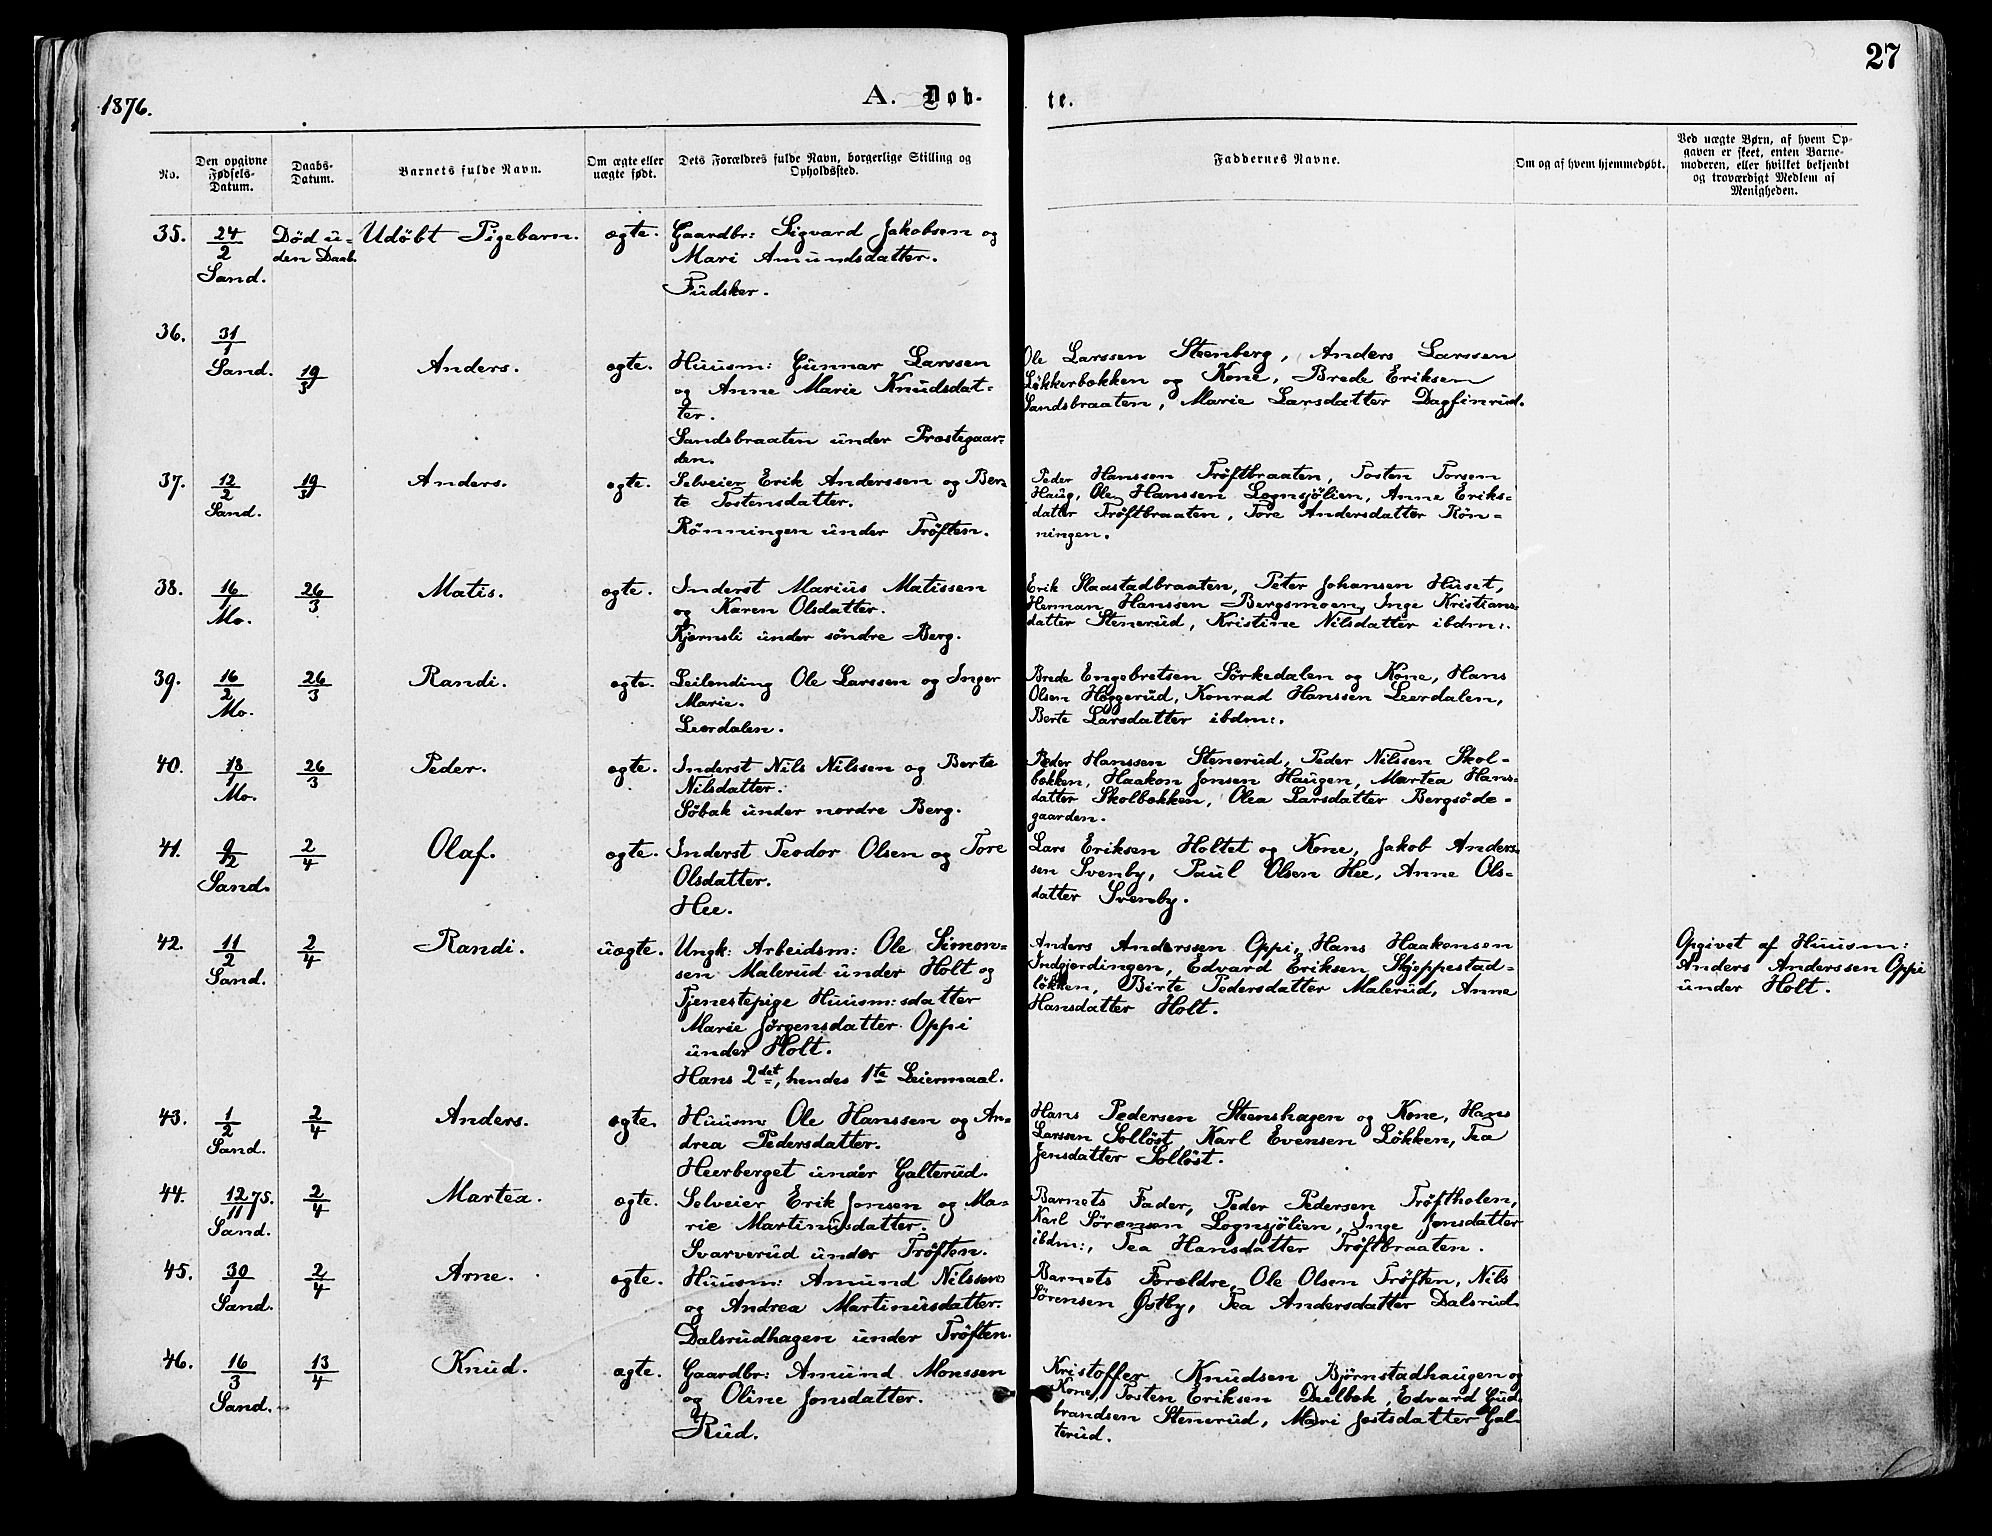 27
1876.
A. Døb-
te.
No.
Den opgivne
Fødsels-
Datum.
Daabs-
Datum.
Barnets fulde Navn.
Om ægte eller
uægte født.
Dets Forældres fulde Navn, borgerlige Stilling og
Opholdssted.
Faddernes Navne.
Om og af hvem hjemmedøbt.
Ved uægte Børn, af hvem Op-
gaven er skeet, enten Barne-
moderen, eller hvilket bekjendt
og troværdigt Medlem af
Menigheden.
35.
24/2
Sand.
Død u-
den Daab.
Udøbt Pigebarn.
ægte.
Gaardbr: Sigvard Jakobsen og
Mari Amundsdatter.
Fudsker.
36.
31/1
Sand.
19/3
Anders.
ægte.
Huusm: Gunnar Larssen
og Anne Marie Knudsdat-
ter.
Sandsbraaten under Præstegaar-
den.
Ole Larssen Steenberg, Anders Larssen
Løkkerbækken og Kone, Brede Eriksen
Sandsbraaten, Marie Larsdatter Dagfinrud.
37.
12/2
Sand.
19/3
Anders.
ægte.
Selveier Erik Anderssen og Ber-
te Tostensdatter.
Rønningen under Trøften.
Peder Hanssen Trøftbraaten, Tosten Torsen
Haug, Ole Hanssen Lognsjølien, Anne Eriks-
datter Trøftbraaten, Tore Andersdatter Røn-
ningen.
38.
16/1
Mo.
26/3
Matis.
ægte.
Inderst Marius Matissen
og Karen Olsdatter.
Kjernsli under søndre Berg.
Erik Slaastadbraaten, Peter Johansen Huset,
Herman Hanssen Bergsmoen, Inge Kristians-
datter Stenerud, Kristine Nilsdatter ibdm:.
39.
16/2
Mo.
26/3
Randi.
ægte.
Leilending Ole Larssen og Inger
Marie.
Leerdalen.
Brede Engebretsen Sørkedalen og Kone, Hans
Olsen Hæggerud, Konrad Hanssen Leerdalen,
Berte Larsdatter ibdm:.
40.
18/1
Mo.
26/3
Peder.
ægte.
Inderst Nils Nilssen og Berte
Nilsdatter.
Søbak under nordre Berg.
Peder Hanssen Stenerud, Peder Nilssen Skol-
bækken, Haakon Jonsen Haugen, Martea Hans-
datter Skolbækken, Olea Larsdatter Bergsøde-
gaarden.
41.
9/12
Sand.
2/4
Olaf.
ægte.
Inderst Teodor Olsen og Tore
Olsdatter.
Hee.
Lars Eriksen Holtet og Kone, Jakob Anders-
sen Svenby, Paul Olsen Hee, Anne Ols-
datter Svenby.
42.
11/2
Sand.
2/4
Randi.
uægte.
Ungk: Arbeidsm: Ole Simon-
sen Malerud under Holt og
Tjenestepige Huusm:sdatter
Marie Jørgensdatter Oppi
under Holt.
Hans 2det, hendes 1te Leiermaal.
Anders Anderssen Oppi, Hans Haakensen
Indgjerdingen, Edvard Eriksen Skjeppestad-
løkken, Birte Pedersdatter Malerud, Anne
Hansdatter Holt.
Opgivet af Huusm:
Anders Anderssen Oppi
under Holt.
43.
1/2
Sand.
2/4
Anders.
ægte.
Huusm Ole Hanssen og An-
drea Pedersdatter.
Heerberget under Galterud.
Hans Pedersen Steenshagen og Kone, Hans
Larssen Solløst, Karl Evensen Løkken, Tea
Jensdatter Solløst.
44.
12/11 75.
Sand.
2/4
Martea.
ægte.
Selveier Erik Jonsen og Ma-
rie Martinusdatter.
Svarverud under Trøften.
Barnets Fader, Peder Pedersen Trøftholen,
Karl Sørensen Lognsjølien, Inge Jonsdatter
ibdm:, Tea Hansdatter Trøftbraaten.
45.
30/1
Sand.
2/4
Arne.
ægte.
Huusm: Amund Nilssen
og Andrea Martinusdatter.
Dalsrudhagen under Trøften.
Barnets Forældre, Ole Olsen Trøften, Nils
Sørensen Østby, Tea Andersdatter Dalsrud.
46.
16/3
Sand.
13/4
Knud.
ægte.
Gaardbr: Amund Monssen
og Oline Jonsdatter.
Rud.
Kristoffer Knudsen Bjørnstadhaugen og
Kone, Tosten Eriksen Dulbæk, Edvard Gud-
brandsen Stenerud, Mari Jostsdatter Gal-
terud.